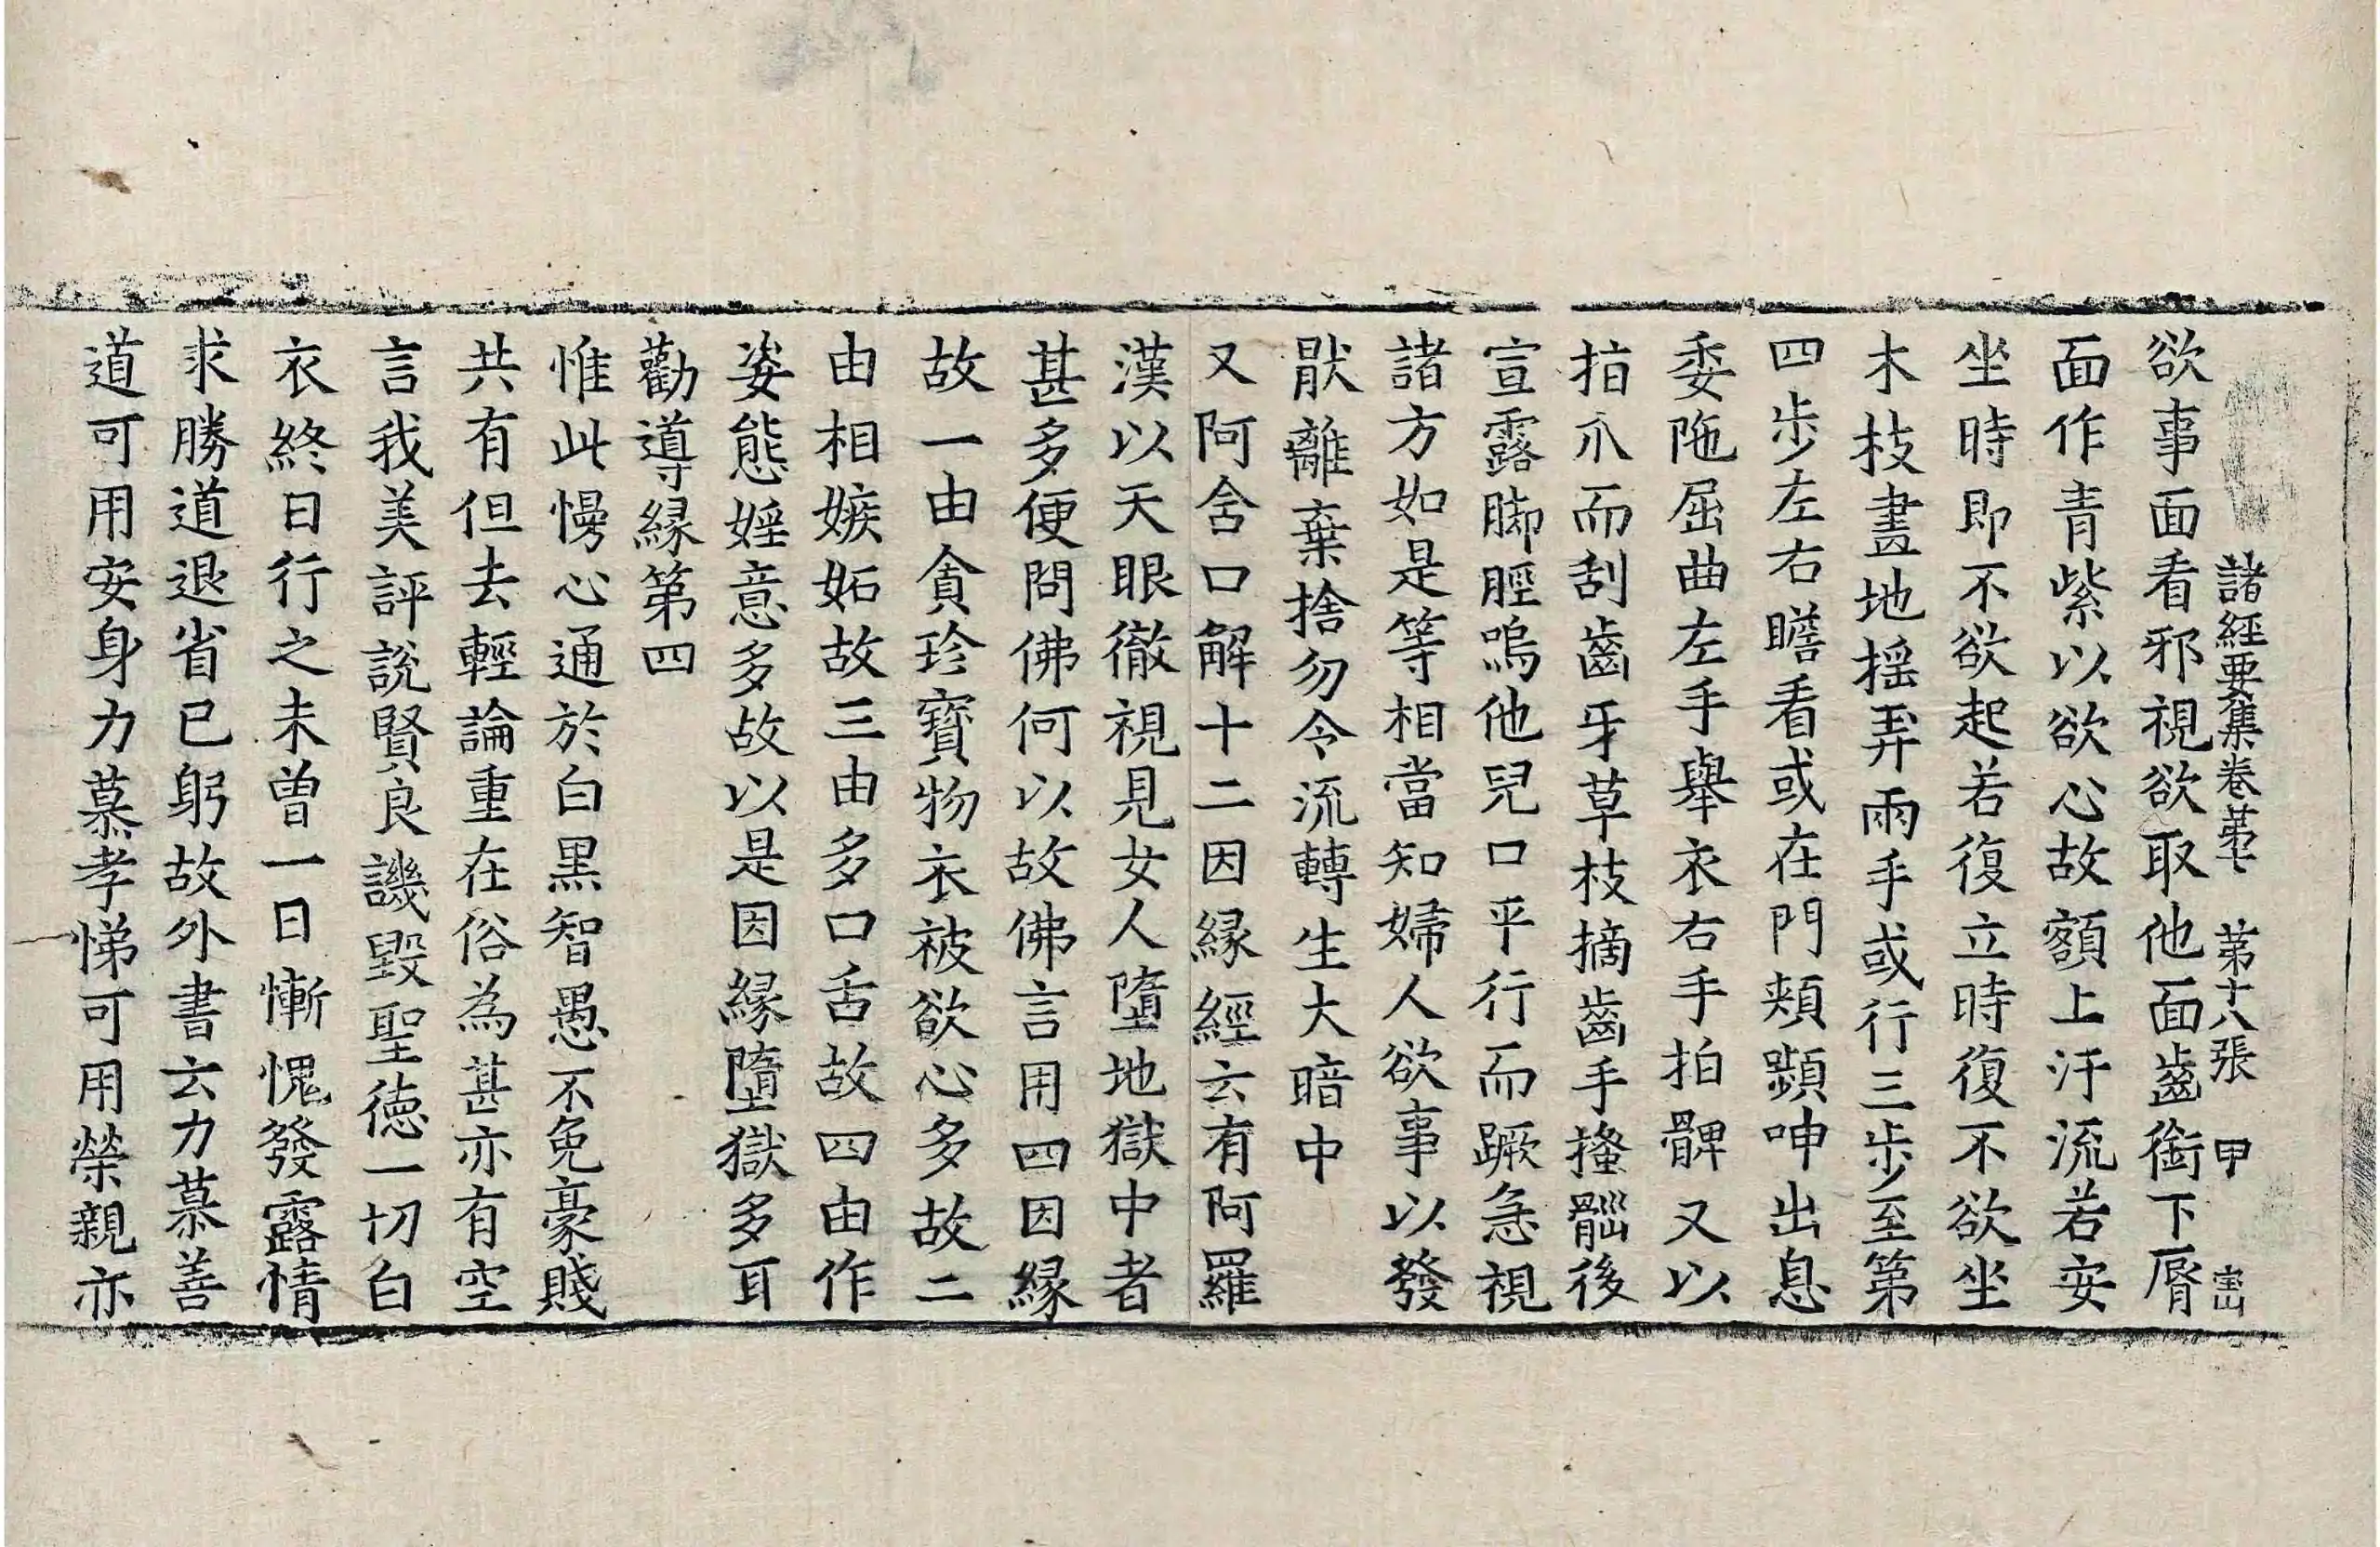 諸經要集卷第七 第十八張 甲
欲事面看邪視欲取他面齒銜下脣
面作青紫以欲心故額上汗流若安
坐時即不欲起若復立時復不欲坐
木枝畫地揺弄兩手或行三步至第
四步左右瞻看或在門頰頻呻出息
委陁屈曲左手舉衣右手拍髀又以
指爪而刮齒牙草枝摘齒手搔𦣱後
宣露脚脛嗚他兒口平行而蹶急視
諸方如是等相當知婦人欲事以發
猒離棄捨勿令流轉生大暗中
又阿含口解十二因縁經云有阿羅
漢以天眼徹視見女人墮地獄中者
甚多便問佛何以故佛言用四因縁
故一由貪珍寶物衣被欲心多故二
由相嫉妬故三由多口舌故四由作
姿態婬意多故以是因縁墮獄多耳
勸導縁第四
惟此慢心通於白黑智愚不免豪賤
共有但去輕論重在俗為甚亦有空
言我美評說賢良譏毀聖德一切白
衣終日行之未曾一日慚愧發露情
求勝道退省已躬故外書云力慕善
道可用安身力慕孝悌可用榮親亦